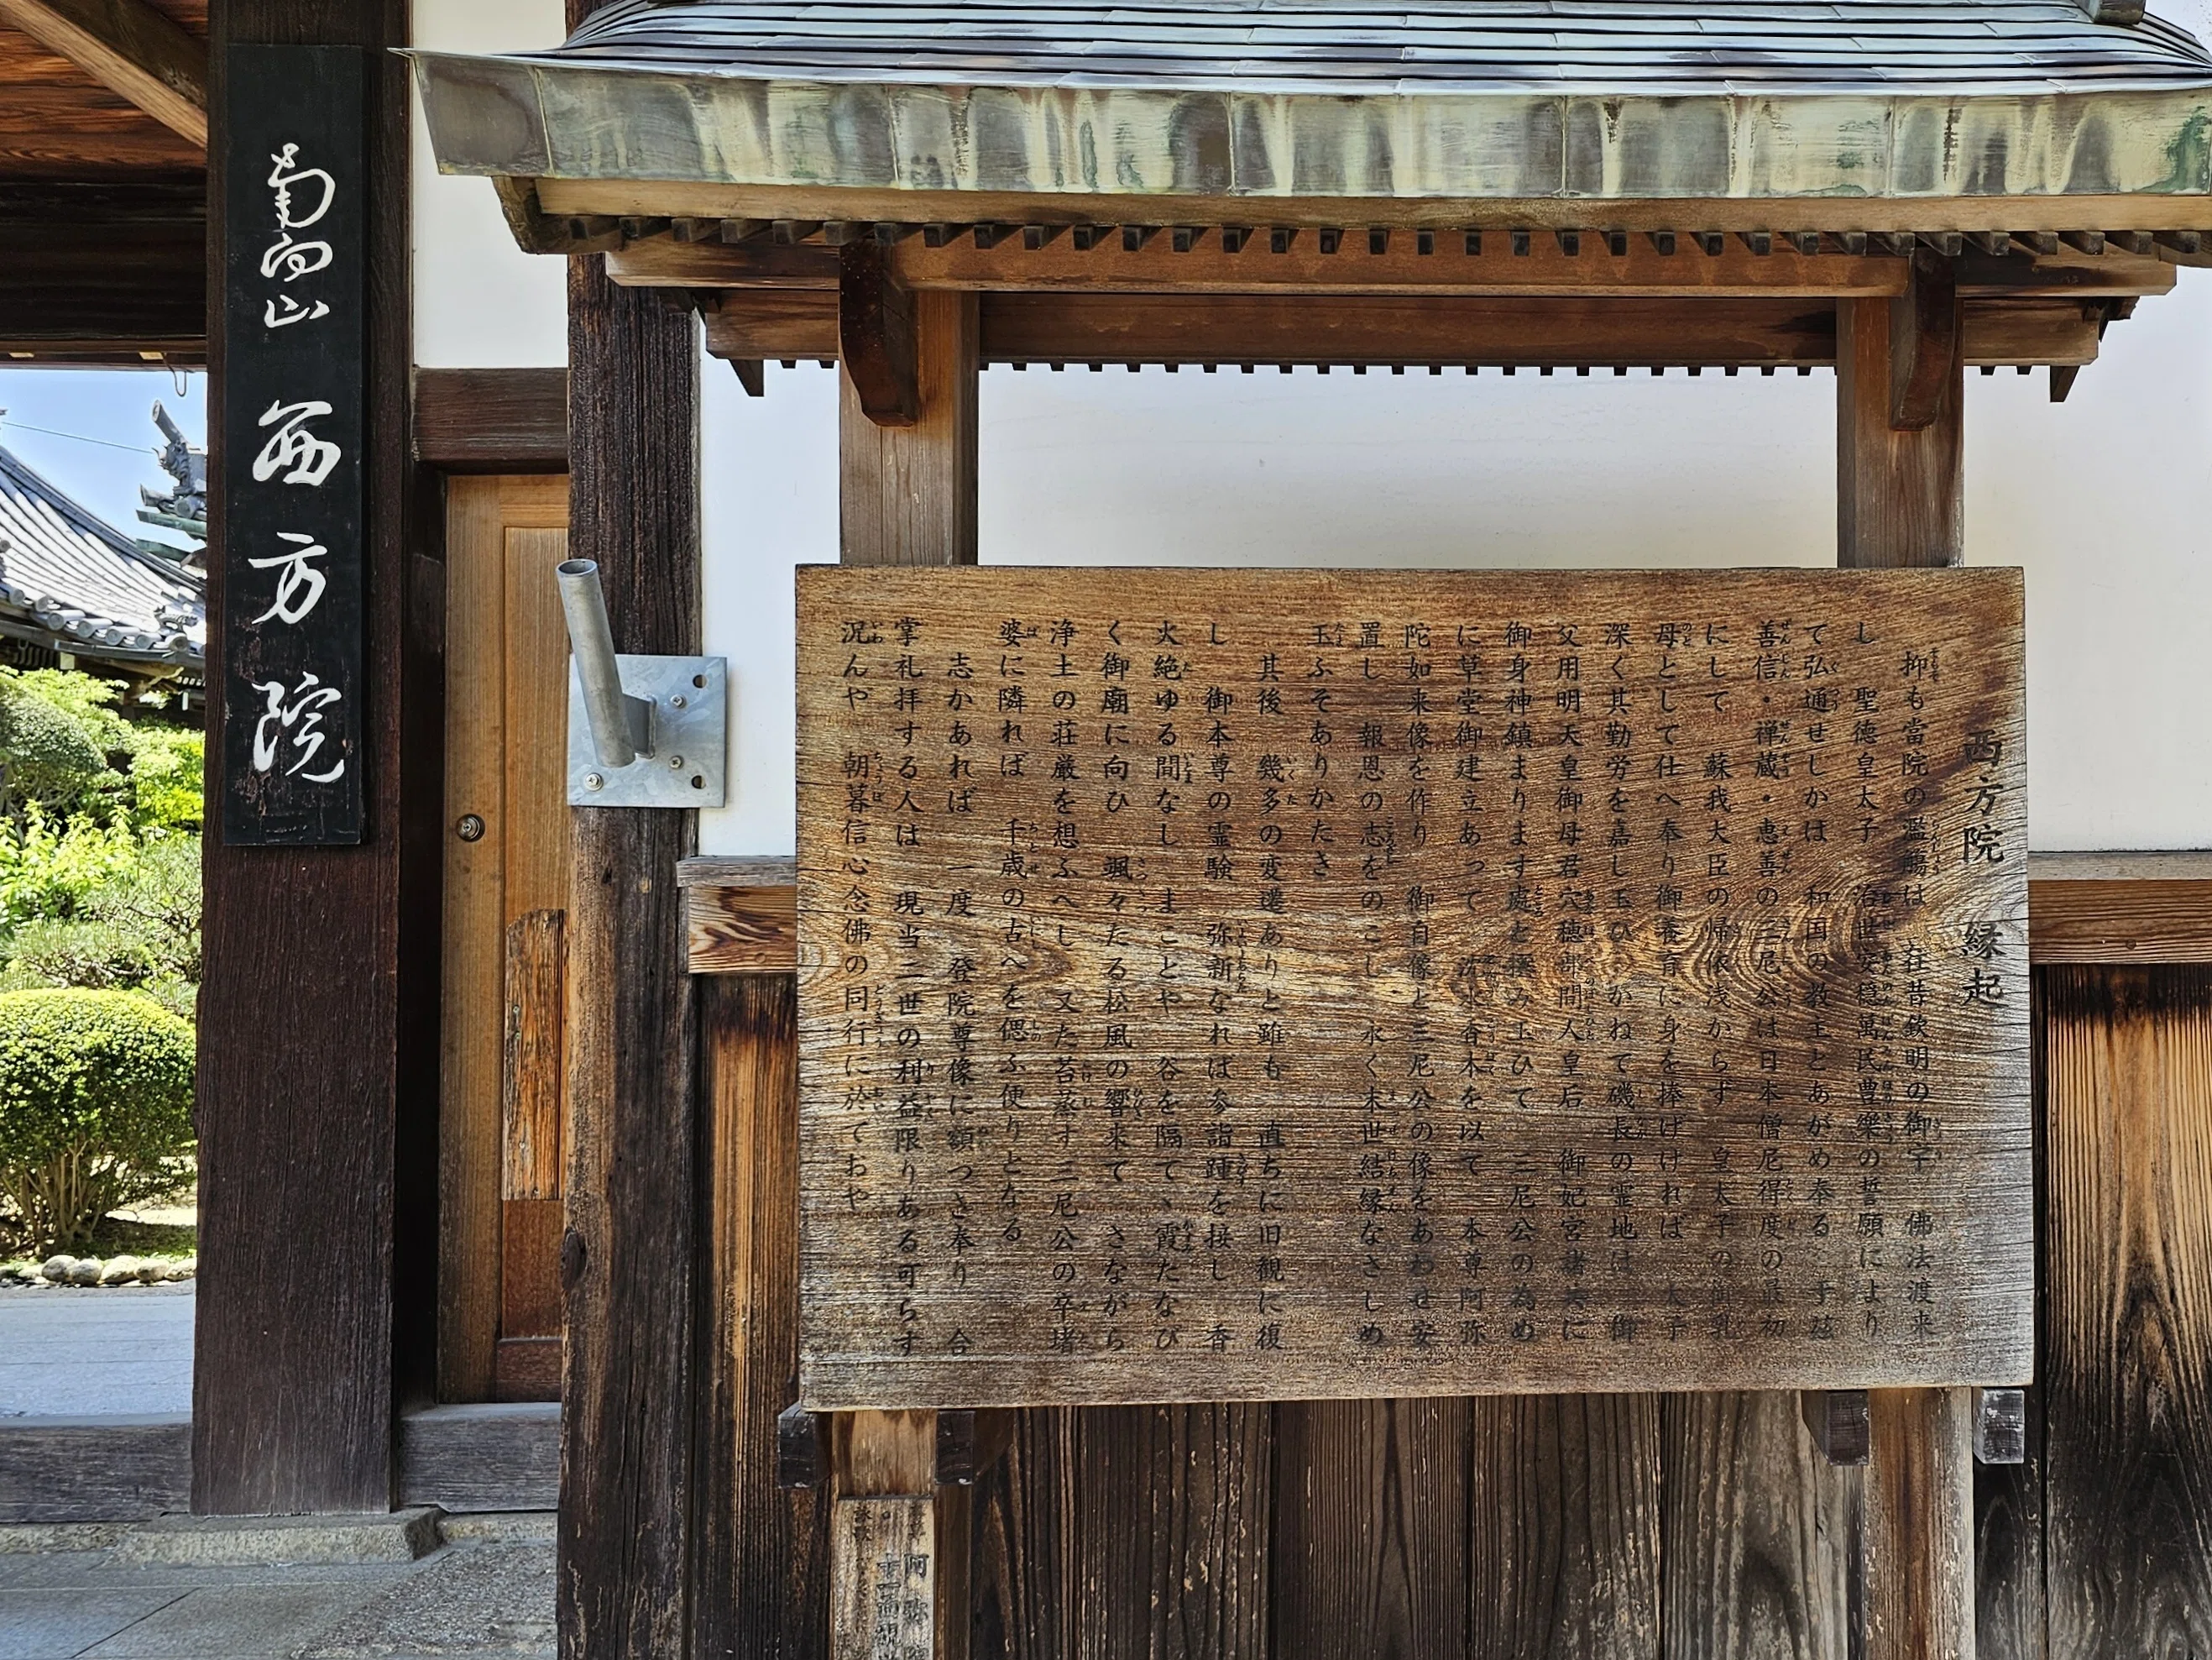 南向山 西方院
西方院 縁起
抑も當院の濫觴は 在昔欽明の御宇 佛法渡来
し 聖徳皇太子 治世安穏萬民豊樂の誓願により
て弘通せしかは 和国の教主とあがめ奉る 于茲
善信・禅蔵・恵善の三尼公は日本僧尼得度の最初
にして 蘇我大臣の帰依浅からず 皇太子の御乳
母として仕へ奉り御養育に身を捧げければ 太子
深く其勤労を嘉し玉ひ かねて磯長の霊地は 御
父用明天皇御母君穴穂部間人皇后 御妃宮諸共に
御身神鎮まります處と撰み玉ひて 三尼公の為め
に草堂御建立あって 沈水香木を以て 本尊阿弥
陀如来像を作り 御自像と三尼公の像をあわせ安
置し 報恩の志をのこし 永く末世結縁なさしめ
玉ふそありかたさ
其後 幾多の変遷ありと雖も 直ちに旧観に復
し 御本尊の霊験 弥新なれは参詣踵を接し 香
火絶ゆる間なし まことや 谷を隔て 霞たなび
く御廟に向ひ 颯々たる松風の響来て さながら
浄土の荘厳を想ふへし 又た苔蒸す三尼公の卒堵
婆に隣れば 千歳の古へを偲ふ便りとなる
志かあれば 一度 登院尊像に額つき奉り 合
掌礼拝する人は 現当二世の利益限りある可らす
況んや 朝暮信心念佛の同行に於ておや
阿弥
十一面観